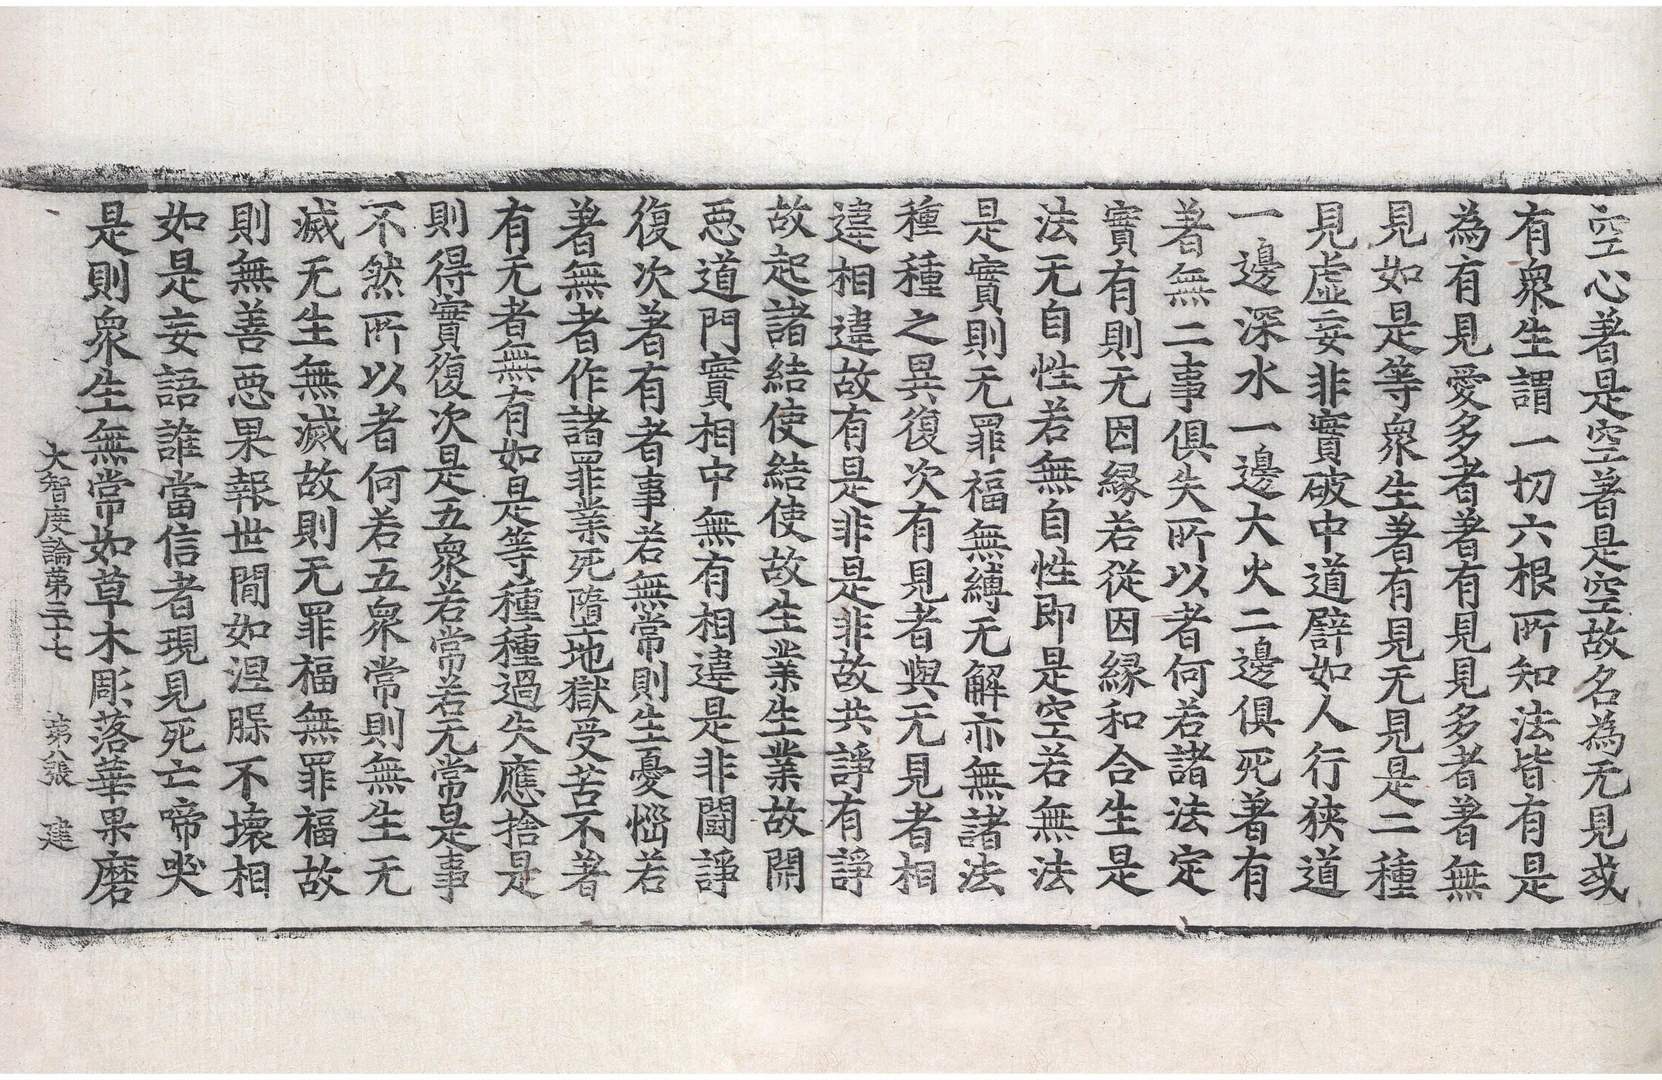 空心著是空著是空故名為无見或
有衆生謂一切六根所知法皆有是
為有見愛多者著有見見多者著無
見如是等衆生著有見无見是二種
見虛妄非實破中道譬如人行狹道
一邊深水一邊大火二邊俱死著有
著無二事俱失所以者何若諸法定
實有則无因緣若從因緣和合生是
法无自性若無自性即是空若無法
是實則无罪福無縛无解亦無諸法
種種之異復次有見者與无見者相
違相違故有是非是非故共諍有諍
故起諸結使結使故生業生業故開
惡道門實相中無有相違是非鬪諍
復次著有者事若無常則生憂惱若
著無者作諸罪業死墮地獄受苦不著
有无者無有如是等種種過失應捨是
則得實復次是五衆若常若无常是事
不然所以者何若五衆常則無生无
滅无生無滅故則无罪福無罪福故
則無善惡果報世間如涅槃不壞相
如是妄語誰當信者現見死亡啼哭
是則衆生無常如草木彫落華果磨
大智度論第三十七 第八張 建